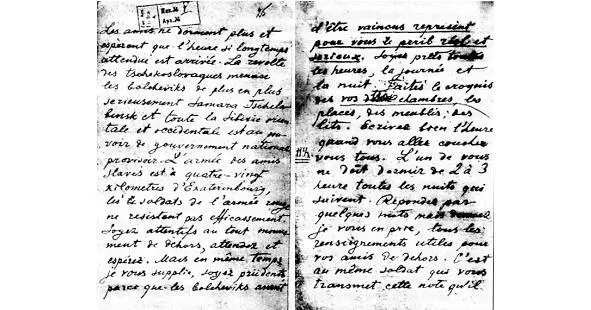 Les amis ne dorment plus et
espèrent que l'heure si longtemps
attendue est arrivée. La revolte
des tschekoslovaques menace
les bolcheviks de plus en plus
serieusement Samara Tschela-
binsk et toute la Sibirie orien-
tale et occidentale est au pou-
voir de gouvernement national
provisoir. L'armée des amis
slaves est à quatre-vingt
kilometres d'Ekaterinbourg,
les soldats de l'armée rouge
ne resistent pas efficassement.
Soyez attentifs au tout mouve-
ment de dehors, attendez et
esperez. Mais en même temps,
je vous supplie, soyez prudents
parce que les bolcheviks avant
d'être vaincus represent
pour vous le peril réel et
serieux. Soyez prêts toutes
les heures, la journée et
la nuit. Faites le croquis
des vos chambres, les
places, des meubles, des
lits. Ecrivez bien l'heure
quand vous allez coucher
vous tous. L'un de vous
ne doit dormir de 2 à 3
heure toutes les nuits qui
suivent. Repondez par
quelques mots mais donnez
je vous en prie, tous les
renseignements utiles pour
vos amis de dehors. C'est
au même soldat qui vous
transmet cette note qu'il